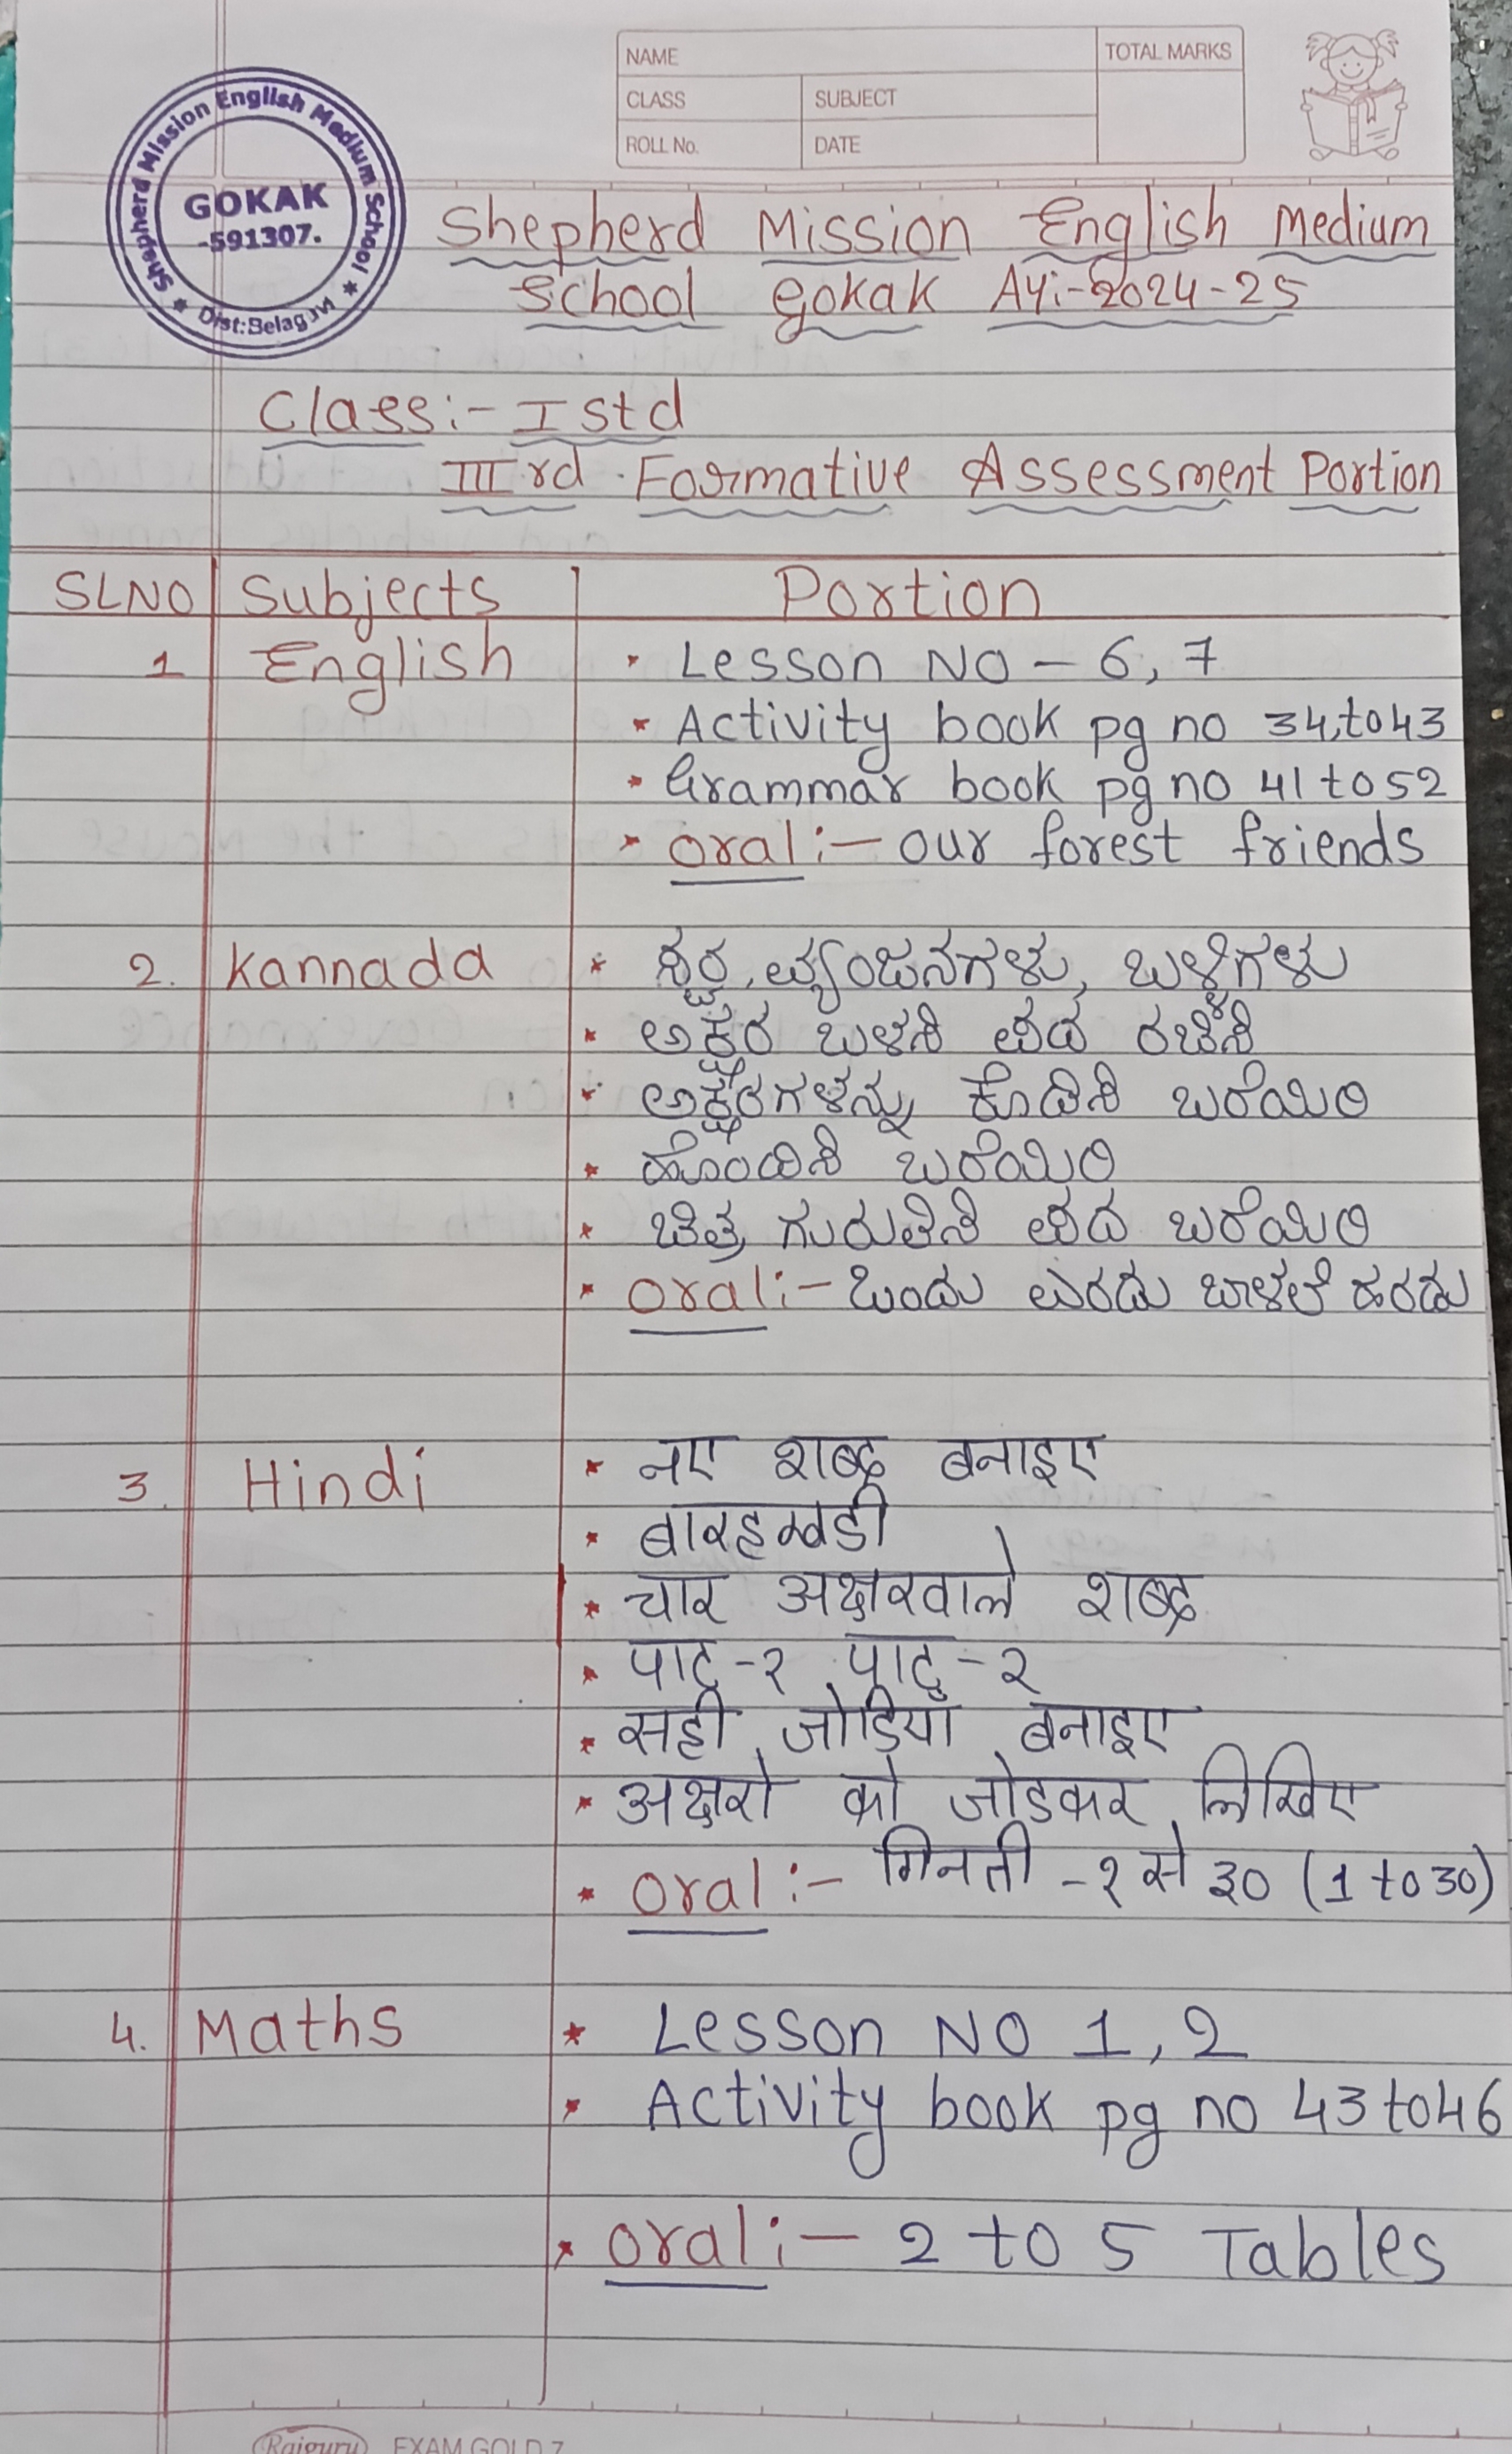 NAME
TOTAL MARKS
CLASS
SUBJECT
ROLL No.
DATE
Shepherd Mission English Medium School
GOKAK
-591307.
Dist:Belagavi
Shepherd Mission English Medium
School Gokak Ay:-2024-25
Class:- I std
III rd Formative Assessment Portion
SLNO Subjects Portion
1 English • Lesson NO - 6, 7
* Activity book pg no 34, to 43
* Grammar book pg no 41 to 52
* Oral :- our forest friends
2. Kannada * ಸ್ವರ, ವ್ಯಂಜನಗಳು, ಬಳ್ಳಿಗಳು
* ಅಕ್ಷರ ಬಳಸಿ ಪದ ರಚಿಸಿ
* ಅಕ್ಷರಗಳನ್ನು ಕೊಡಿಸಿ ಬರೆಯಿರಿ
* ಹೊಂದಿಸಿ ಬರೆಯಿರಿ
* ಚಿತ್ರ ಗುರುತಿಸಿ ಪದ ಬರೆಯಿರಿ
* Oral :- ಒಂದು ಎರಡು ಬಾಳಲೆ ಹರಡು
3. Hindi * नए शब्द बनाइए
* बारहखडी
* चार अक्षरवाले शब्द
* पाठ-१ पाठ-२
* सही जोडियाँ बनाइए
* अक्षरो को जोडकर लिखिए
* Oral :- गिनती -१ से ३० (1 to 30)
4. Maths * Lesson NO 1, 2
* Activity book pg no 43 to 46
* Oral :- 2 to 5 Tables
Rajguru EXAM GOLD 7